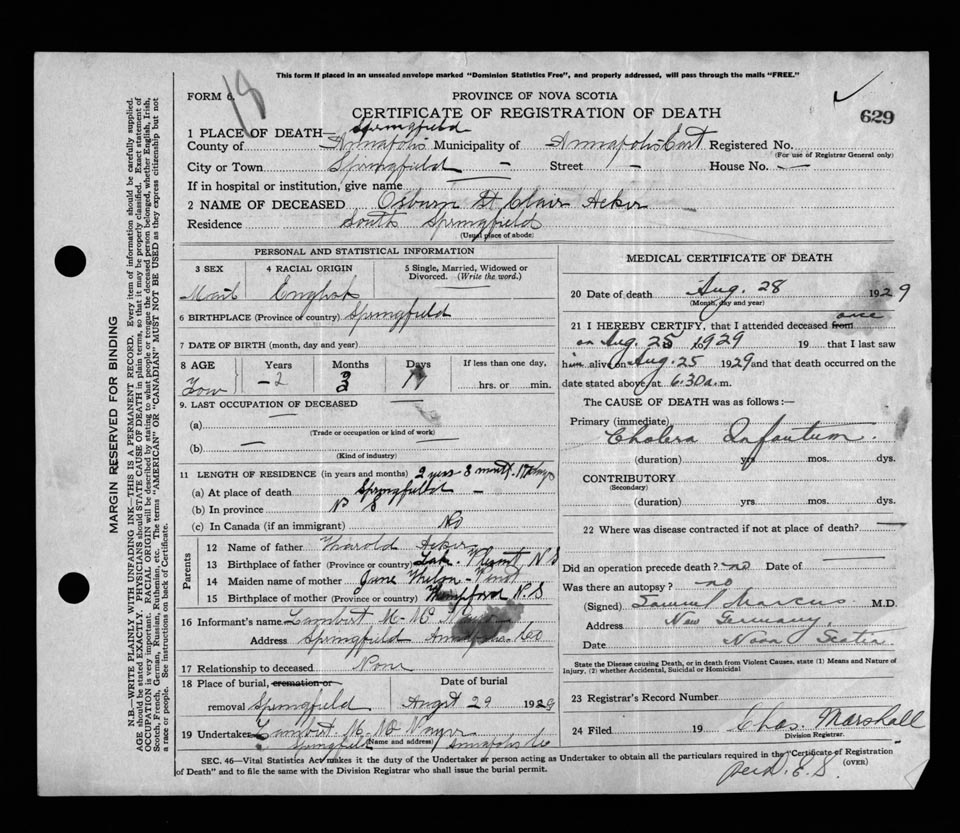 This form if placed in an unsealed envelope marked "Dominion Statistics Free", and properly addressed, will pass through the mails "FREE."
18
FORM 6.
PROVINCE OF NOVA SCOTIA
CERTIFICATE OF REGISTRATION OF DEATH
629
1 PLACE OF DEATH— Springfield
County of Annapolis Municipality of Annapolis East Registered No.
(For use of Registrar General only)
City or Town Springfield – Street – House No. —
If in hospital or institution, give name
2 NAME OF DECEASED Osburn St Clair Acker
Residence South Springfield
(Usual place of abode)
MARGIN RESERVED FOR BINDING
N.B.—WRITE PLAINLY WITH UNFADING INK—THIS IS A PERMANENT RECORD. Every item of information should be carefully supplied.
AGE should be stated EXACTLY. PHYSICIANS should STATE CAUSE OF DEATH in plain terms, so that it may be properly classified. Exact statement of
OCCUPATION is very important. RACIAL ORIGIN will be described by stating to what people or tongue the deceased person belonged, whether English, Irish,
Scotch, French, German, Russian, Ruthenian, etc. The terms "AMERICAN" or "CANADIAN" MUST NOT BE USED as they express citizenship but not
a race or people. See instructions on back of Certificate.
PERSONAL AND STATISTICAL INFORMATION
3 SEX 4 RACIAL ORIGIN 5 Single, Married, Widowed or
Divorced. (Write the word.)
English
6 BIRTHPLACE (Province or country) Springfield
7 DATE OF BIRTH (month, day and year)
8 AGE Years Months Days If less than one day,
2 17 hrs. or min.
9. LAST OCCUPATION OF DECEASED
(a)
(Trade or occupation or kind of work)
(b) —
(Kind of industry)
11 LENGTH OF RESIDENCE (in years and months) 2 yrs 8 mont. 17 days
(a) At place of death Springfield –
(b) In province N S
(c) In Canada (if an immigrant) No
Parents
12 Name of father Harold Acker
13 Birthplace of father (Province or country) N S
14 Maiden name of mother Jane
15 Birthplace of mother (Province or country) N.S
16 Informant's name Lambert M.
Address Springfield Annapolis Co
17 Relationship to deceased None
18 Place of burial, cremation or Date of burial
removal Springfield Augst 29 1929
19 Undertaker Lambert M.
(Name and address)
Springfield Annapolis Co
MEDICAL CERTIFICATE OF DEATH
20 Date of death Aug. 28 1929
(Month, day and year)
21 I HEREBY CERTIFY, that I attended deceased from once
on Aug. 25 1929 19 that I last saw
him alive on Aug. 25 1929 and that death occurred on the
date stated above at 6.30 a.m.
The CAUSE OF DEATH was as follows:—
Primary (immediate)
Cholera Infantum.
(duration) yrs. mos. dys.
CONTRIBUTORY
(Secondary)
(duration) yrs. mos. dys.
22 Where was disease contracted if not at place of death? —
Did an operation precede death? no Date of —
Was there an autopsy? no
(Signed) Samuel Marcus M.D.
Address New Germany,
Date Nova Scotia
State the Disease causing Death, or in death from Violent Causes, state (1) Means and Nature of
Injury, (2) whether Accidental, Suicidal or Homicidal
23 Registrar's Record Number
24 Filed 19 Chas. Marshall
Division Registrar.
SEC. 46—Vital Statistics Act makes it the duty of the Undertaker or person acting as Undertaker to obtain all the particulars required in the "Certificate of Registration
of Death" and to file the same with the Division Registrar who shall issue the burial permit.
(OVER)